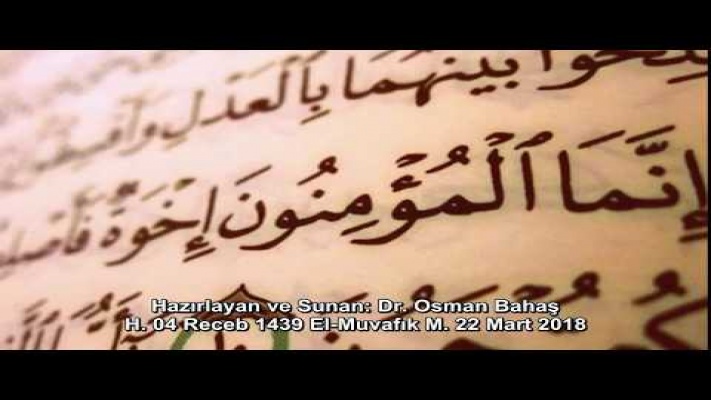 بَيْنَهُمَا بِٱلْعَدْلِ
إِنَّمَا ٱلْمُؤْمِنُونَ إِخْوَةٌ
Hazırlayan ve Sunan: Dr. Osman Bahaş
H. 04 Receb 1439 El-Muvafık M. 22 Mart 2018